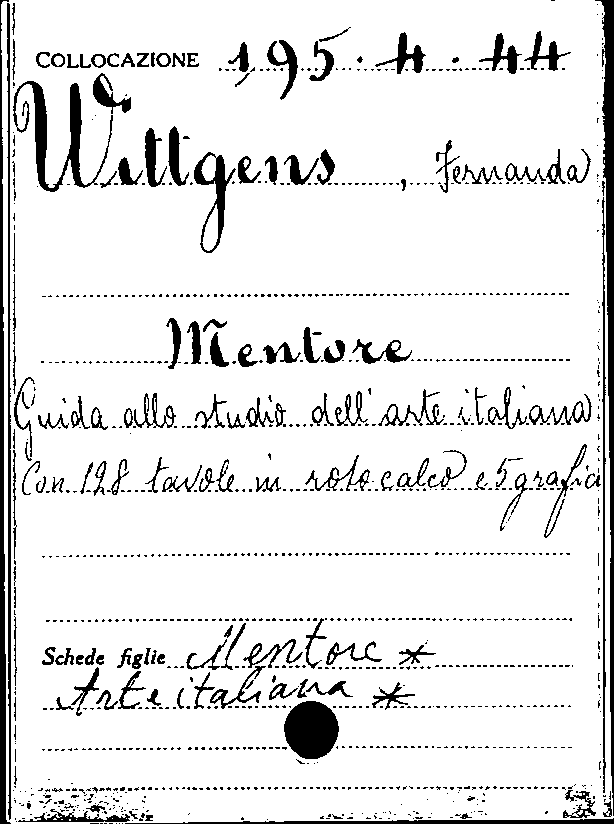 COLLOCAZIONE 195.4.44
Wittgens, Fernanda
Mentore
Guida allo studio dell'arte italiana
Con 128 tavole in rotocalco e 5 grafici
Schede figlie Mentore *
Arte italiana *